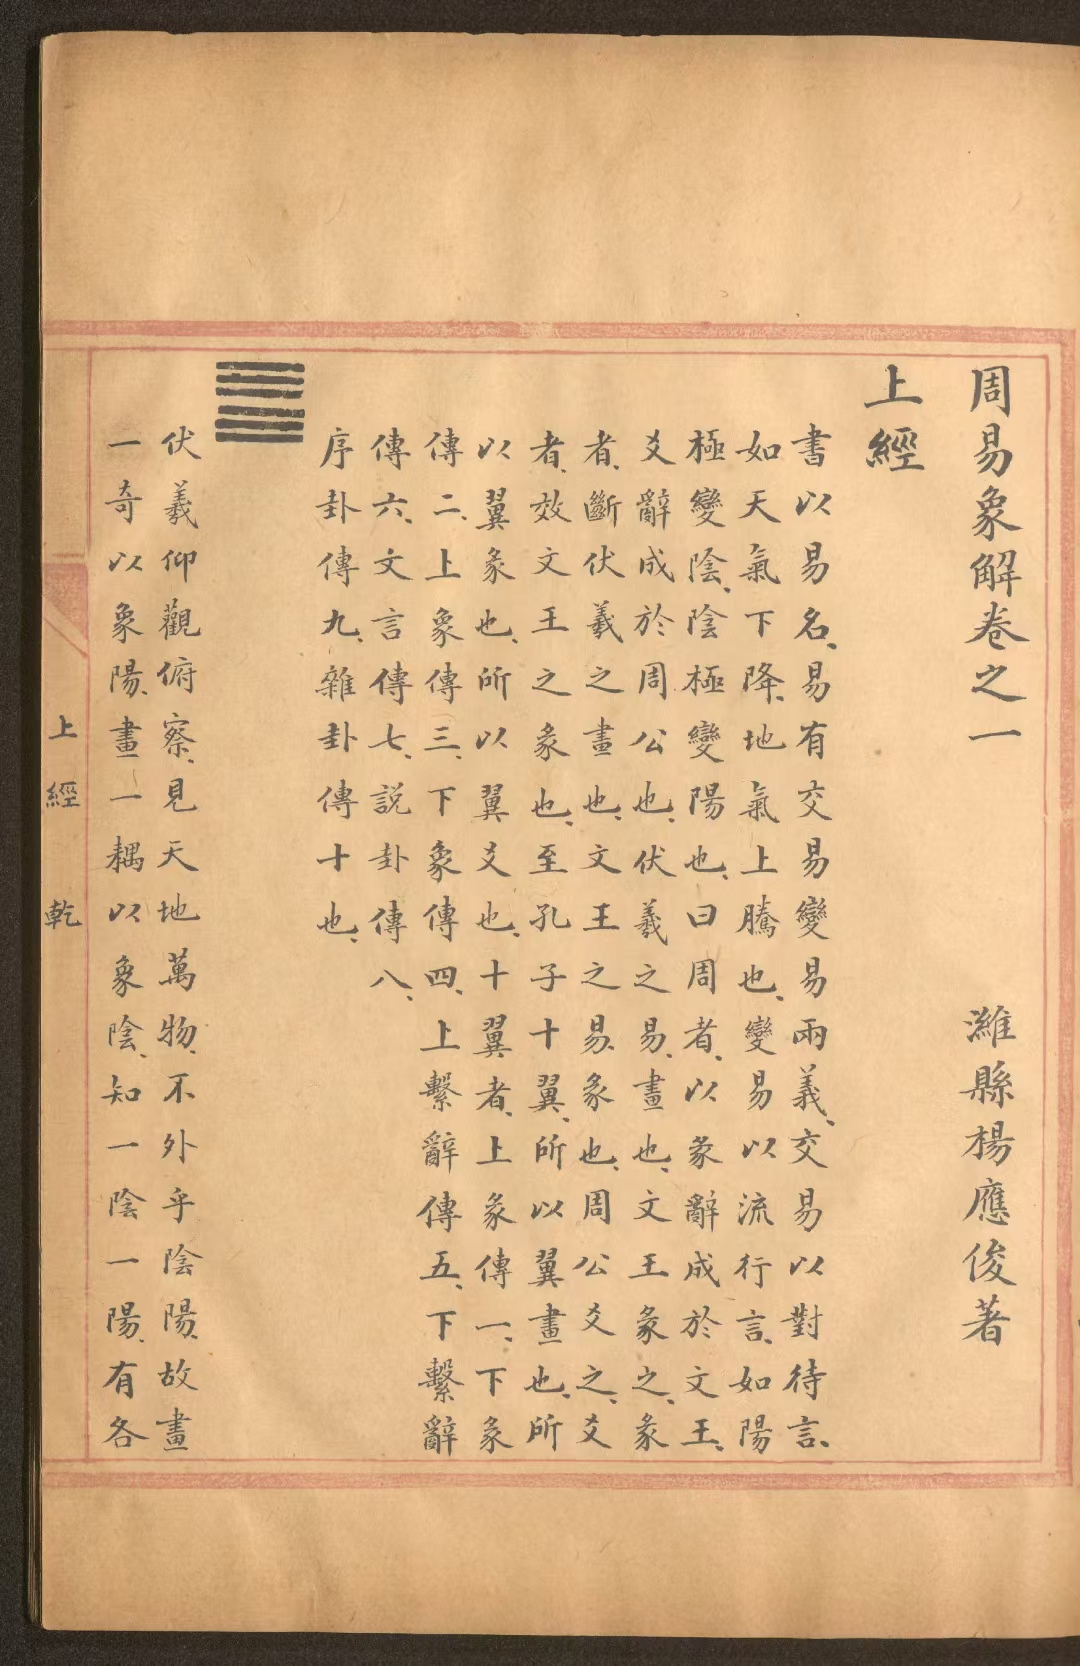 周易象解卷之一 濰縣楊應俊著
上經
書以易名、易有交易變易兩義、交易以對待言、
如天氣下降、地氣上騰也、變易以流行言、如陽
極變陰、陰極變陽也、曰周者、以彖辭成於文王、
爻辭成於周公也、伏羲之易、畫也、文王彖之、彖
者、斷伏羲之畫也、文王之易、彖也、周公爻之、爻
者、效文王之彖也、至孔子十翼、所以翼畫也、所
以翼彖也、所以翼爻也、十翼者、上彖傳一、下彖
傳二、上象傳三、下象傳四、上繫辭傳五、下繫辭
傳六、文言傳七、說卦傳八、
序卦傳九、雜卦傳十也、
伏羲仰觀俯察、見天地萬物、不外乎陰陽、故畫
一奇以象陽、畫一耦以象陰、知一陰一陽、有各
上經 乾